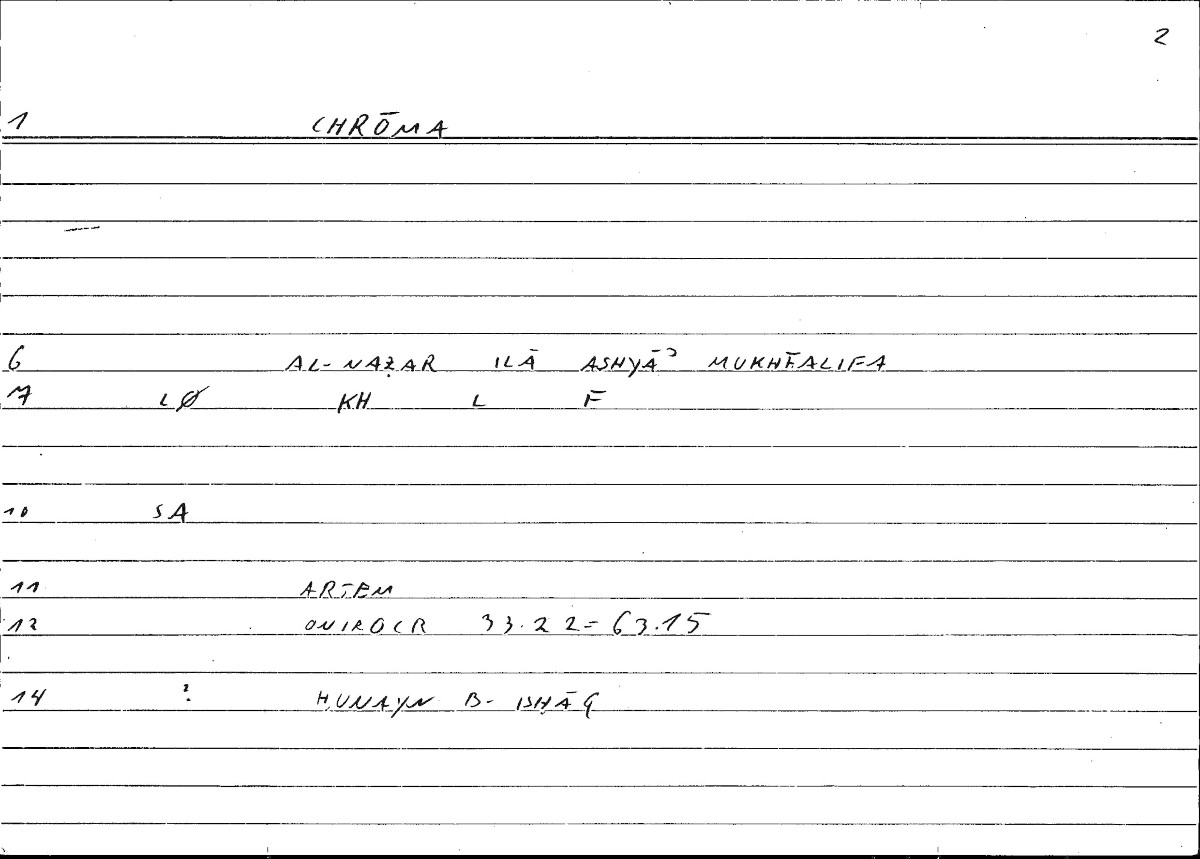 2
1 CHRŌMA
6 AL-NAẒAR ILĀ ASHYĀʾ MUKHTALIFA
7 LØ KH L F
10 SA
11 ARTEM
12 ONIROCR 33.22=63.15
14 ? ḤUNAYN B- ISḤĀQ